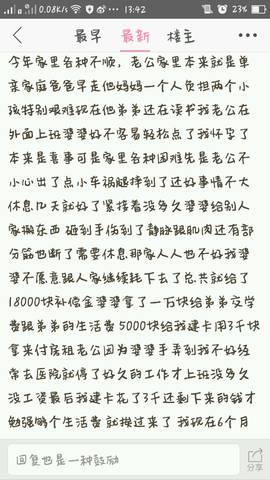 0.08K/s 13:42 23%
最早 最新 楼主
今年家里各种不顺，老公家里本来就是单
亲家庭爸爸早走他妈妈一个人负担两个小
孩特别艰难现在他弟弟还在读书我老公在
外面上班婆婆好不容易轻松点了我怀孕了
本来是喜事可是家里各种困难先是老公不
小心出了点小车祸腿摔到了还好事情不大
休息几天就好了紧接着没多久婆婆给别人
家搬东西 砸到手伤到了静脉跟肌肉还有部
分筋也断了需要休息那家人人也不好我婆
婆不愿意跟人家继续耗下去了总共就给了
18000块补偿金婆婆拿了一万块给弟弟交学
费跟弟弟的生活费 5000块给我建卡用3千块
拿来付房租老公因为婆婆手弄到我不好经
常去医院就停了好久的工作才上班没多久
没工资最后我建卡花了3千还剩下来的钱才
勉强够个生活费 就挨过来了 我现在6个月
回复也是一种鼓励
分享